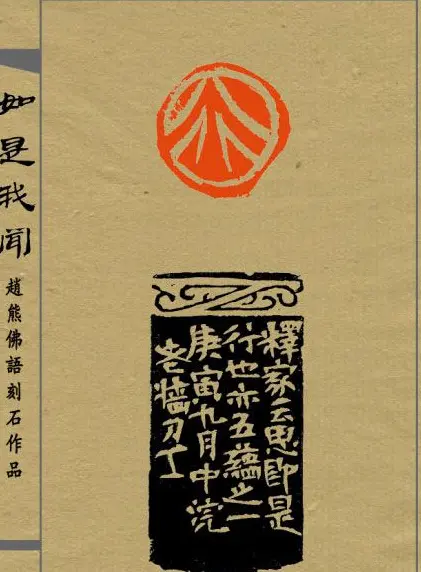 如是我聞
趙熊佛語刻石作品
釋家云思即是
行也亦五蘊之一
庚寅九月中浣
老牆刀